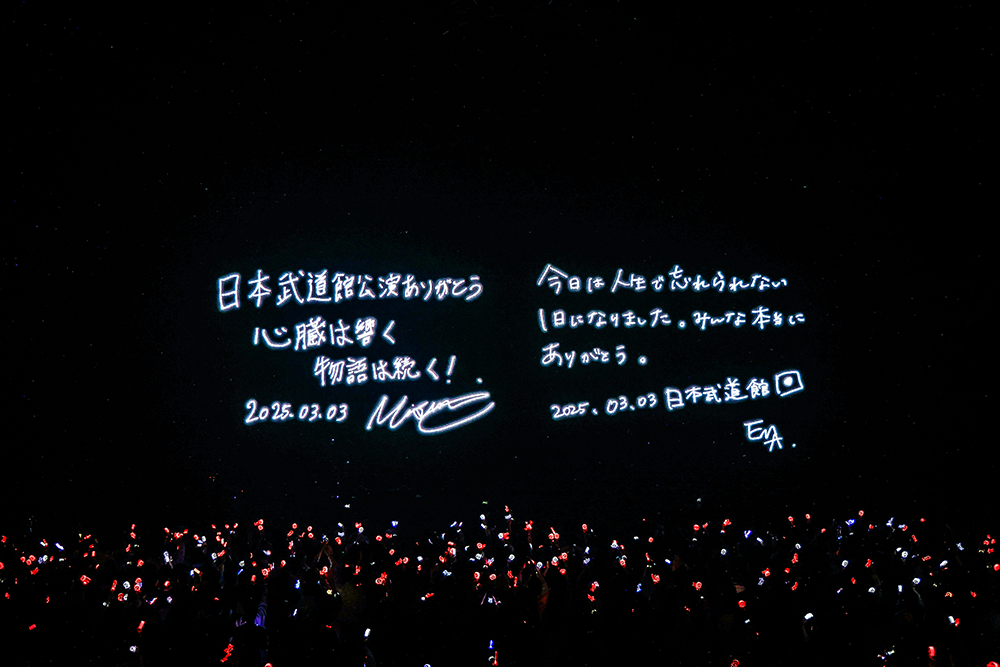 日本武道館公演ありがとう
心臓は響く
物語は続く!
2025.03.03
今日は人生で忘れられない
1日になりました。みんな本当に
ありがとう。
2025.03.03 日本武道館
EMA.